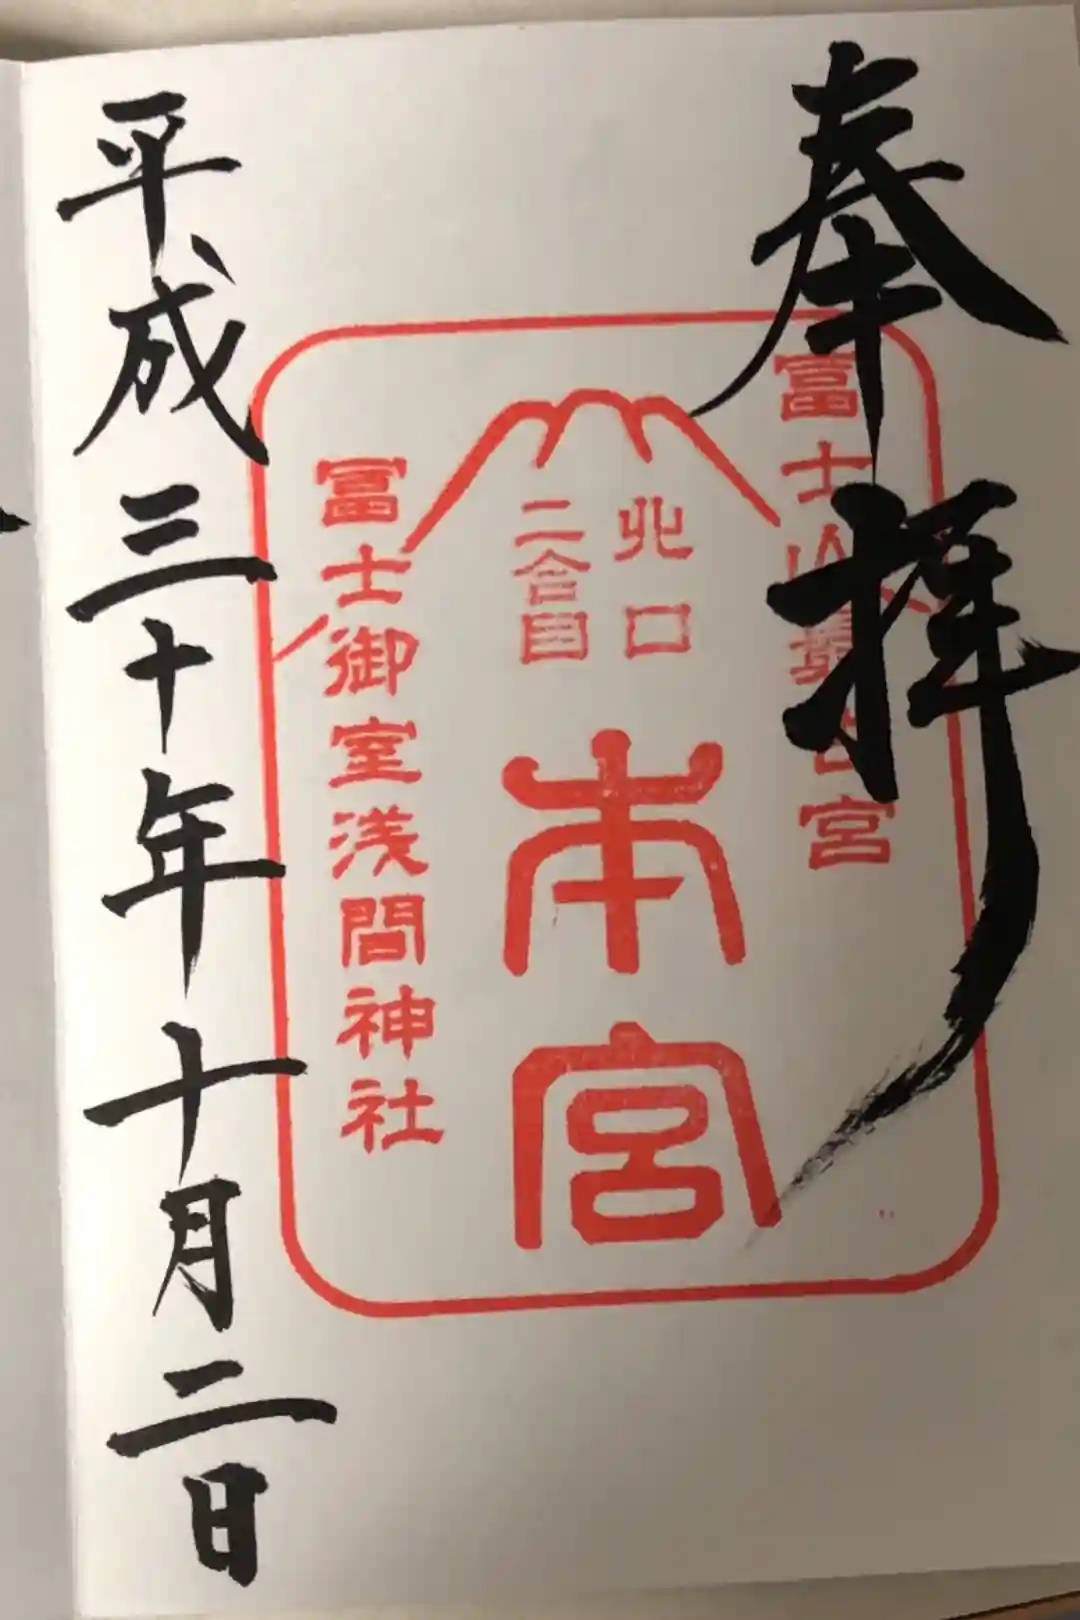 奉拝
冨士山最古宮
北口
二合目
本宮
冨士御室浅間神社
平成三十年十月二日